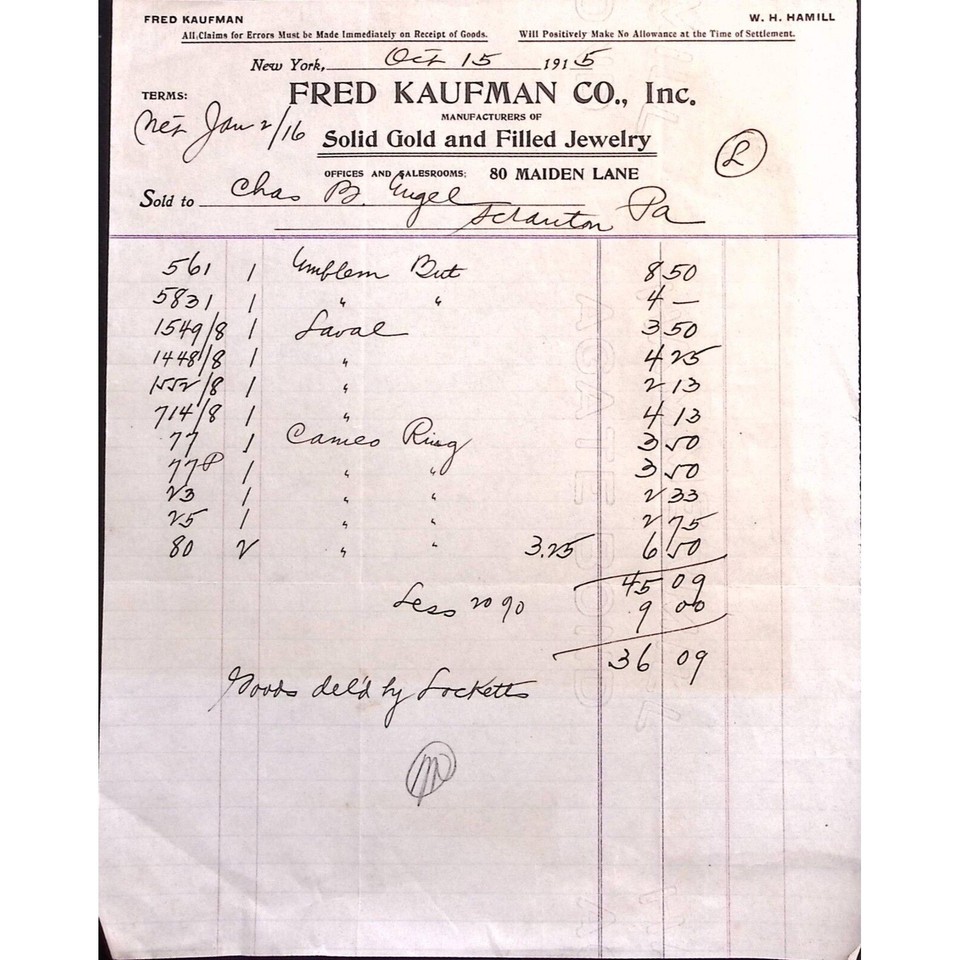 FRED KAUFMAN W. H. HAMILL
All Claims for Errors Must be Made Immediately on Receipt of Goods. Will Positively Make No Allowance at the Time of Settlement.
New York, Oct 15 1915
FRED KAUFMAN CO., Inc.
TERMS: MANUFACTURERS OF
Net Jan 2/16 Solid Gold and Filled Jewelry
L
OFFICES AND SALESROOMS: 80 MAIDEN LANE
Sold to Chas B. Engel
Scranton Pa
561 1 Emblem But 8 50
5831 1 " " 4 —
1549/8 1 Laval 3 50
1448/8 1 " 4 25
1552/8 1 " 2 13
714/8 1 " 4 13
77 1 Cameo Ring 3 50
77P 1 " " 3 50
23 1 " " 2 33
25 1 " " 2 75
80 2 " " 3.25 6 50
45 09
Less 20 % 9 00
36 09
Goods del'd by Locketts